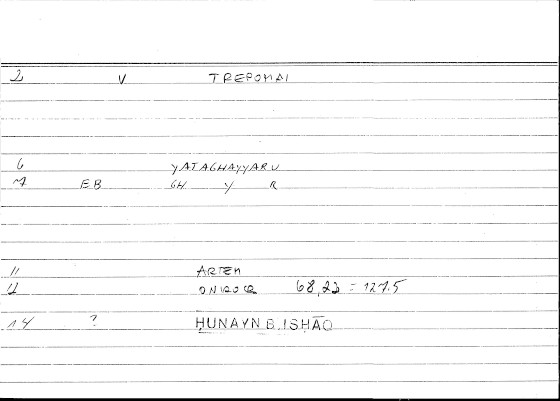 2 V TREPOMAI
6 YATAGHAYYARU
7 EB GH Y R
11 ARTEM
12 ONIROCR 68,22 = 127.5
14 ? ḤUNAYN B. ISḤĀQ